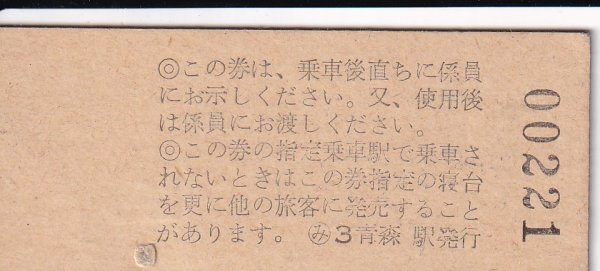 ◎この券は、乗車後直ちに係員
にお示しください。又、使用後
は係員にお渡しください。
◎この券の指定乗車駅で乗車さ
れないときはこの券指定の寝台
を更に他の旅客に発売すること
があります。 ㋯3青森 駅発行
00221